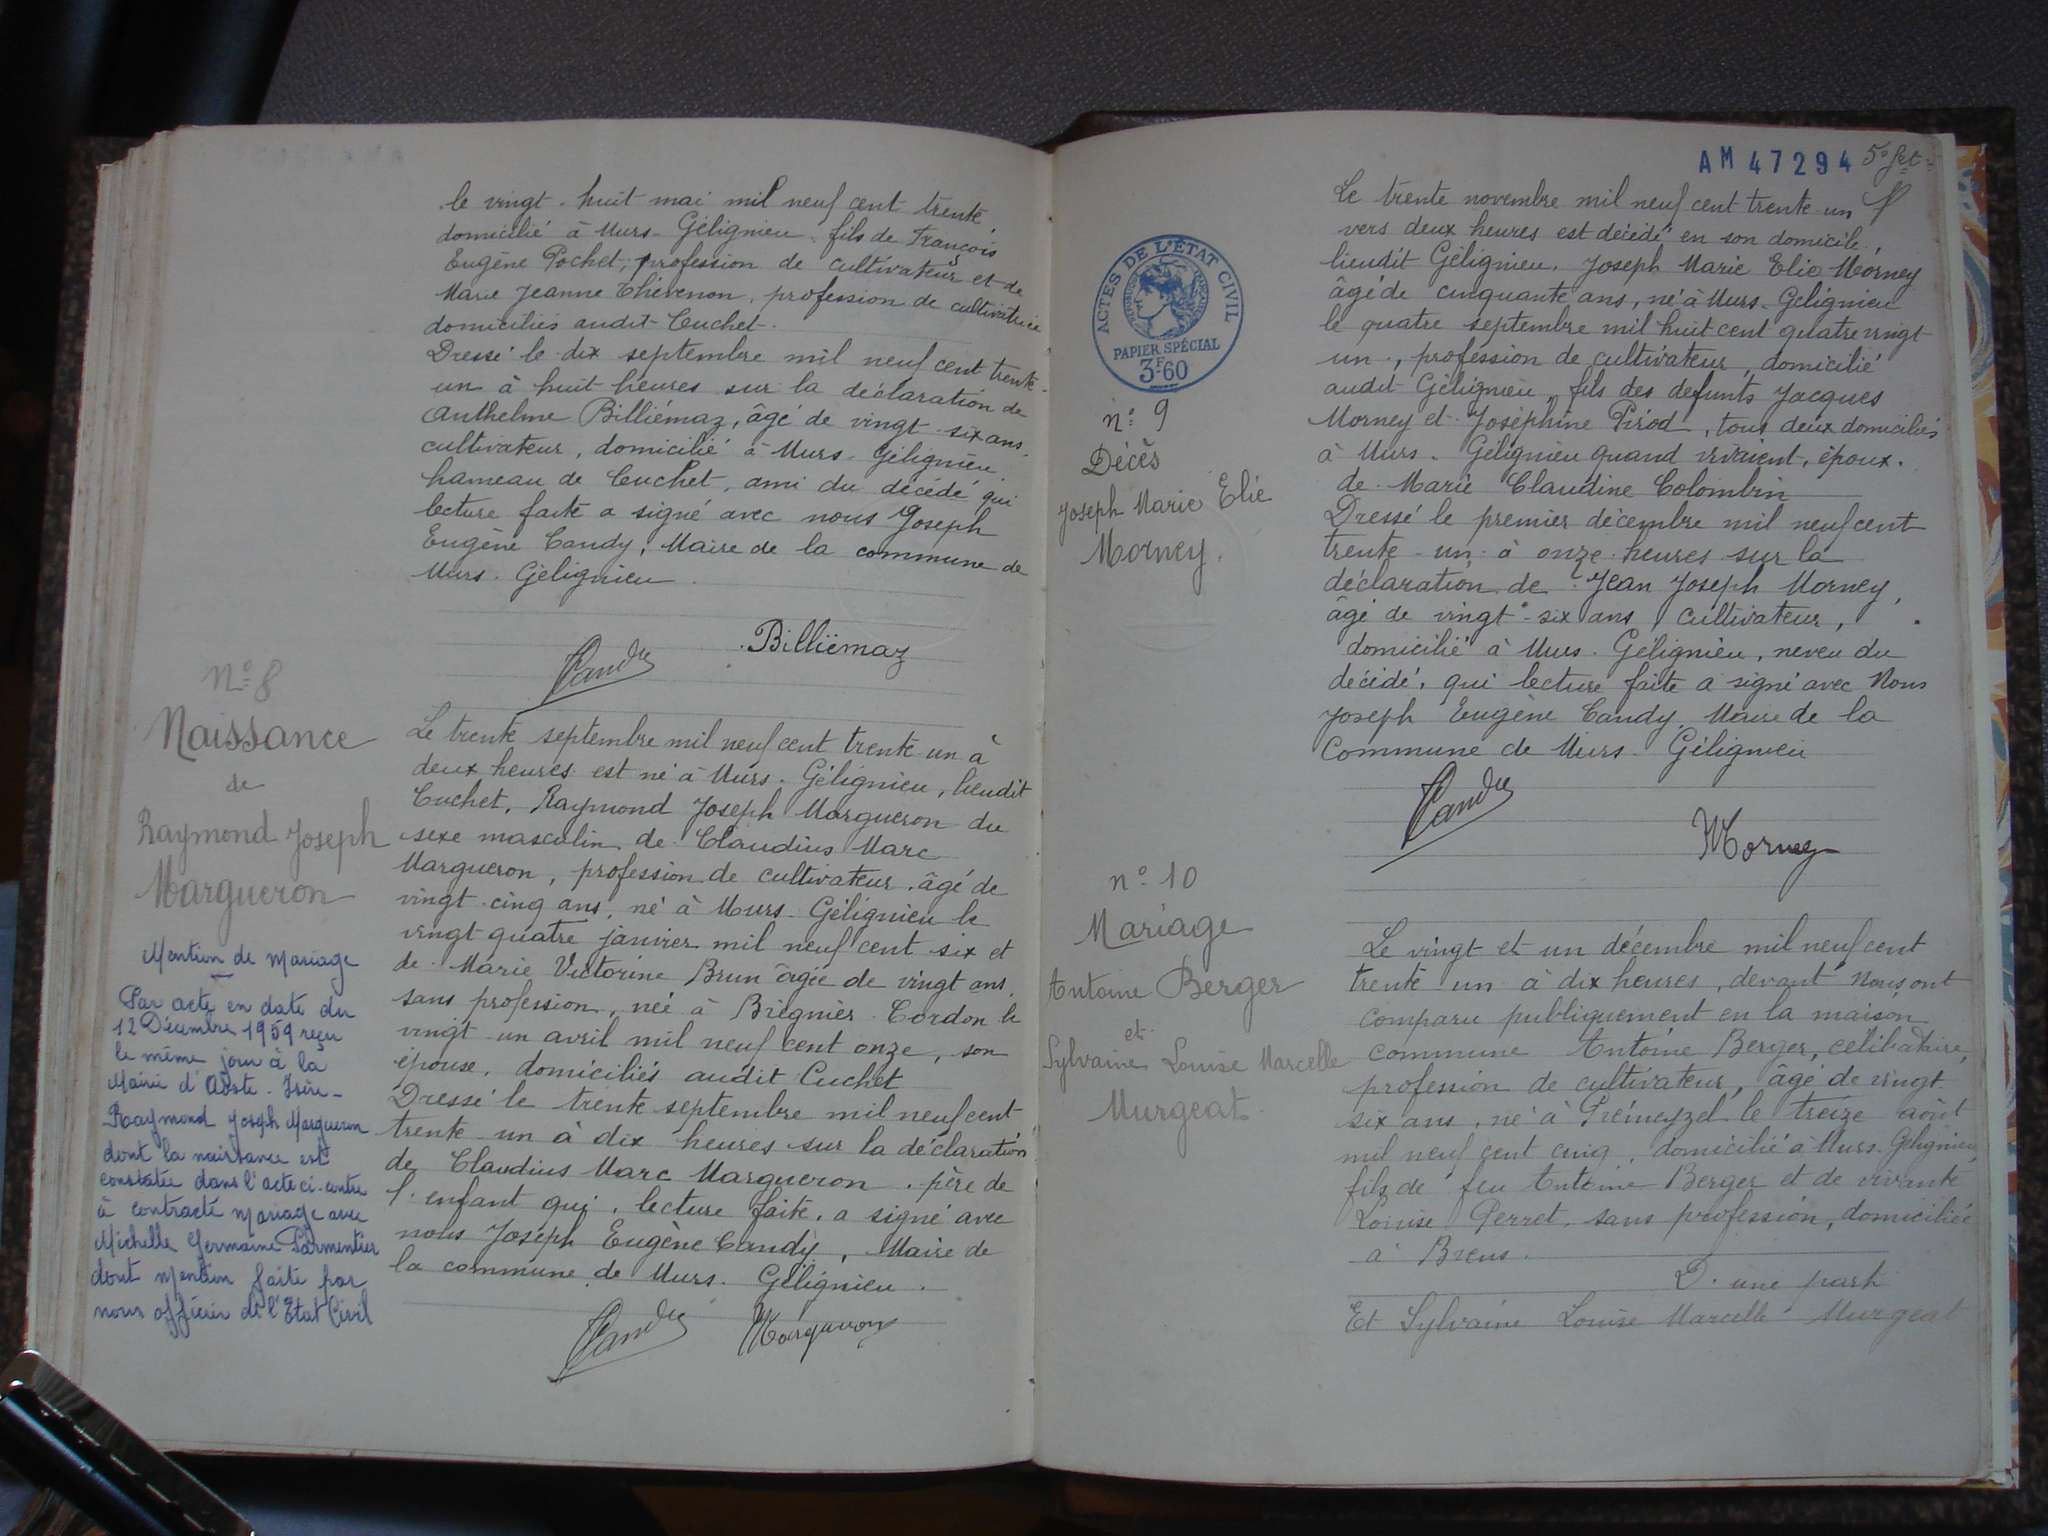 le vingt-huit mai mil neuf cent trente
domicilié à Murs-Gélignieu, fils de François
Eugène Pochet, profession de cultivateur et de
Marie Jeanne Thévenon, profession de cultivatrice
domiciliés audit Cuchet.
Dressé le dix septembre mil neuf cent trente-
un à huit heures sur la déclaration de
Anthelme Billiémaz, âgé de vingt-six ans
cultivateur, domicilié à Murs-Gélignieu
hameau de Cuchet, ami du décédé qui
lecture faite a signé avec nous Joseph
Eugène Candy, Maire de la commune de
Murs-Gélignieu.
Billiémaz
N° 8
Naissance
de
Raymond Joseph
Margueron
Le trente septembre mil neuf cent trente-un à
deux heures est né à Murs-Gélignieu, lieudit
Cuchet, Raymond Joseph Margueron du
sexe masculin de Claudius Marc
Margueron, profession de cultivateur, âgé de
vingt-cinq ans, né à Murs-Gélignieu le
vingt quatre janvier mil neuf cent six et
de Marie Victorine Brun âgée de vingt ans,
sans profession, née à Brégnier-Cordon le
vingt-un avril mil neuf cent onze, son
épouse, domiciliés audit Cuchet
Dressé le trente septembre mil neuf cent
trente-un à dix heures sur la déclaration
de Claudius Marc Margueron, père de
l'enfant qui, lecture faite, a signé avec
nous Joseph Eugène Candy, Maire de
la commune de Murs-Gélignieu.
Margueron
Mention de mariage
Par acte en date du
12 Décembre 1959 reçu
le même jour à la
Mairie d'Aoste-Isère-
Raymond Joseph Margueron
dont la naissance est
constatée dans l'acte ci-contre
à contracté mariage avec
Michelle Germaine Parmentier
dont mention faite par
nous officier de l'Etat Civil
AM 47294
ACTES DE L'ÉTAT CIVIL
PAPIER SPÉCIAL
3F60
n° 9
Décès
Joseph Marie Elie
Morney.
Le trente novembre mil neuf cent trente un
vers deux heures est décédé en son domicile,
lieudit Gélignieu, Joseph Marie Elie Morney
âgé de cinquante ans, né à Murs-Gélignieu
le quatre septembre mil huit cent quatre vingt
un, profession de cultivateur, domicilié
audit Gélignieu, fils des defunts Jacques
Morney et Joséphine Pirod, tous deux domiciliés
à Murs-Gélignieu quand vivaient, époux
de Marie Claudine Colombin
Dressé le premier décembre mil neuf cent
trente-un à onze heures sur la
déclaration de Jean Joseph Morney,
âgé de vingt-six ans, cultivateur,
domicilié à Murs-Gélignieu, neveu du
décédé, qui lecture faite a signé avec Nous
Joseph Eugène Candy, Maire de la
commune de Murs-Gélignieu
Morney
n° 10
Mariage
Antoine Berger
et
Sylvaine Louise Marcelle
Murgeat
Le vingt et un décembre mil neuf cent
trente un à dix heures, devant Nous ont
comparu publiquement en la maison
commune Antoine Berger, célibataire,
profession de cultivateur, âgé de vingt-
six ans, né à Prémeyzel le treize août
mil neuf cent cinq, domicilié à Murs-Gélignieu,
fils de feu Antoine Berger et de vivante
Louise Perret, sans profession, domiciliée
à Brens.
D'une part
Et Sylvaine Louise Marcelle Murgeat